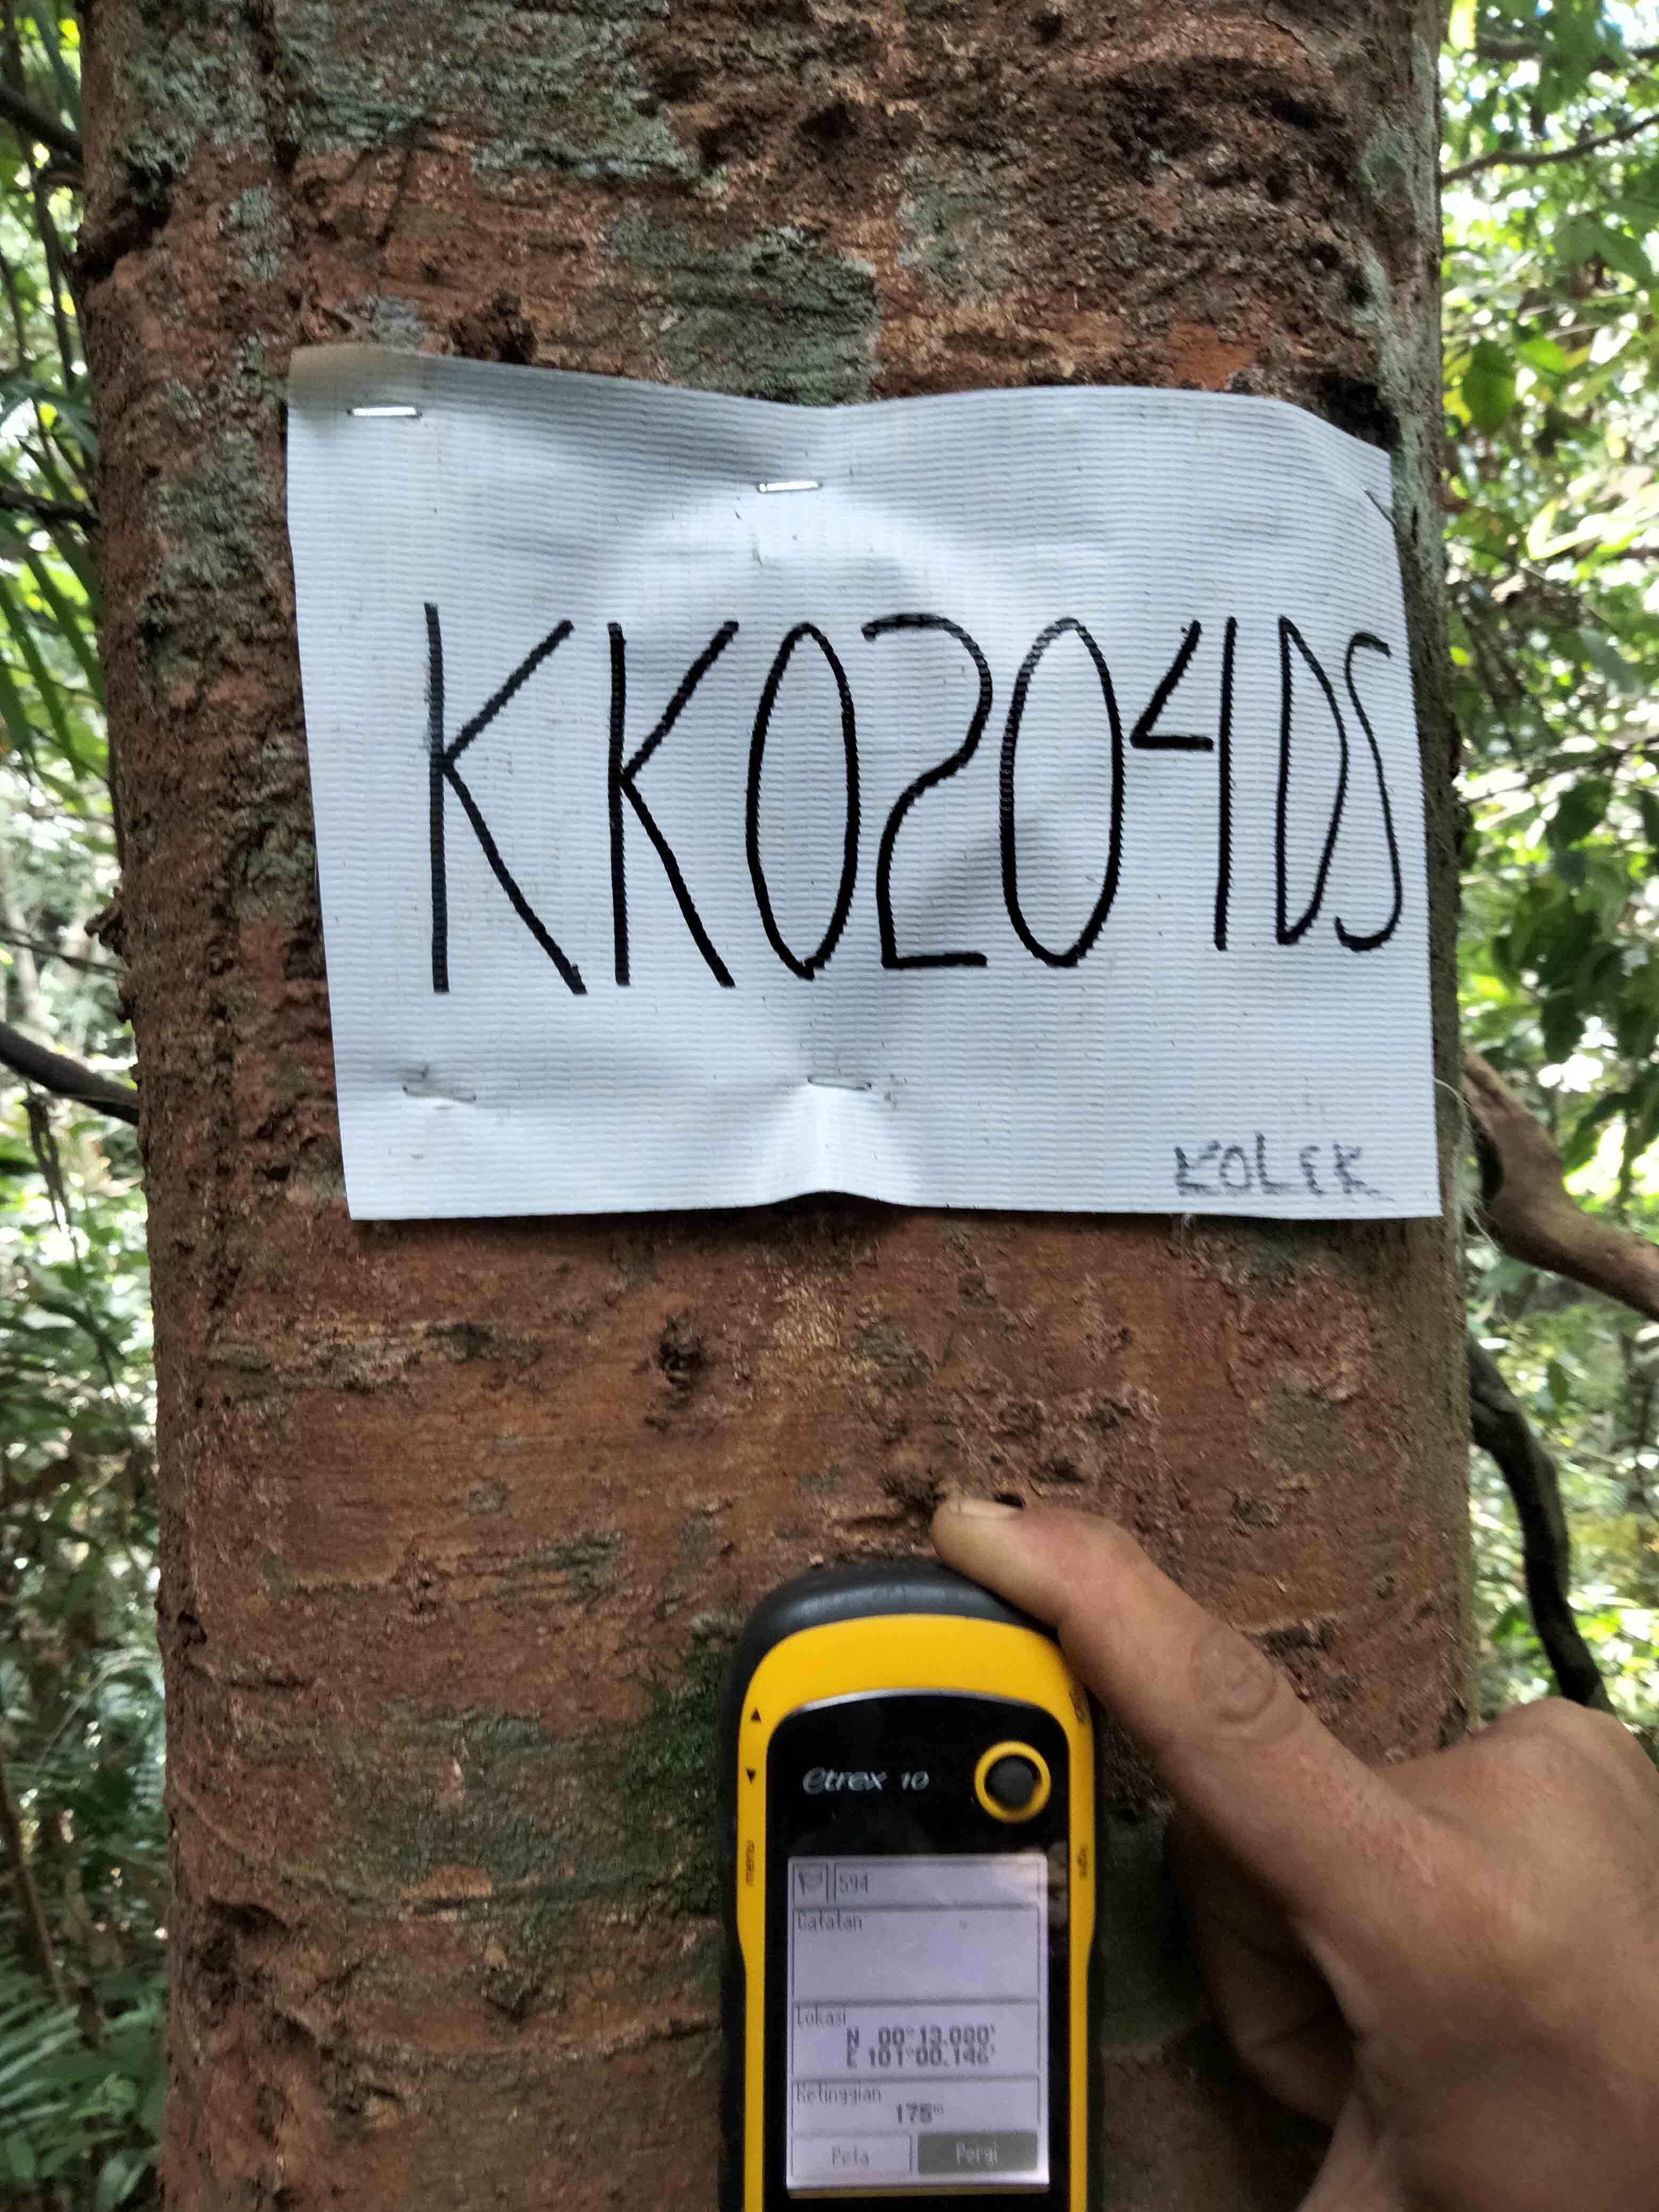 KK0204DS
KOLEK
eTrex 10
menu
light
594
Catatan
Lokasi
N 00°13.000'
E 101°00.146'
Ketinggian
175m
Peta Pergi